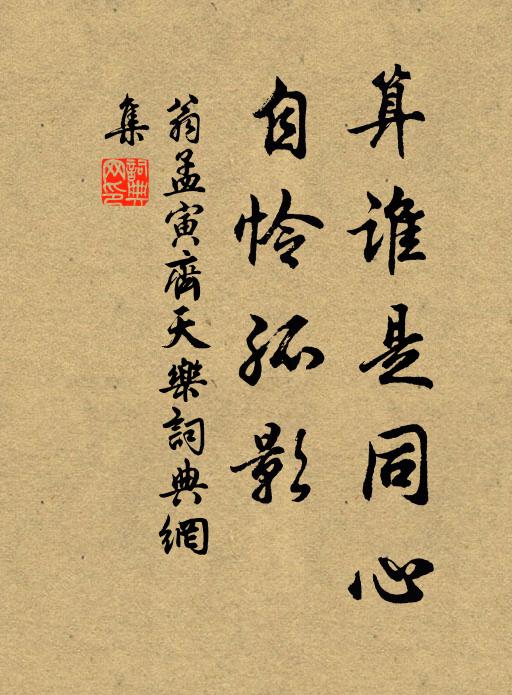 算誰是同心
自怜孤影
翁孟寅齊天樂詞典網
集
詞典
网印